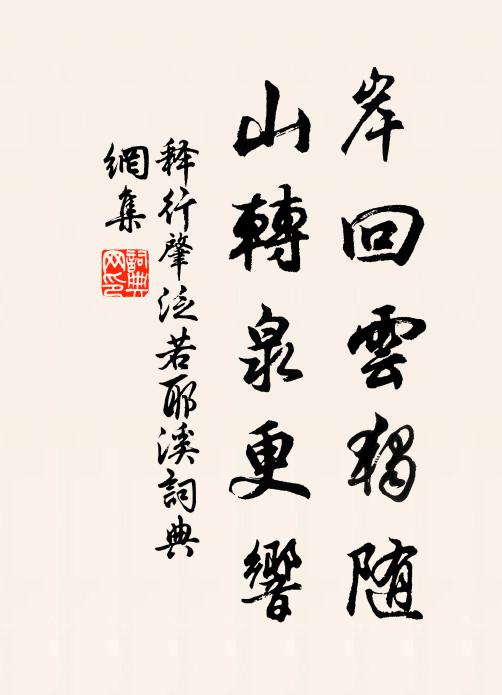 岸回雲独随
山轉泉更響
释行肇泛若耶溪詞典
網集
詞典
网印